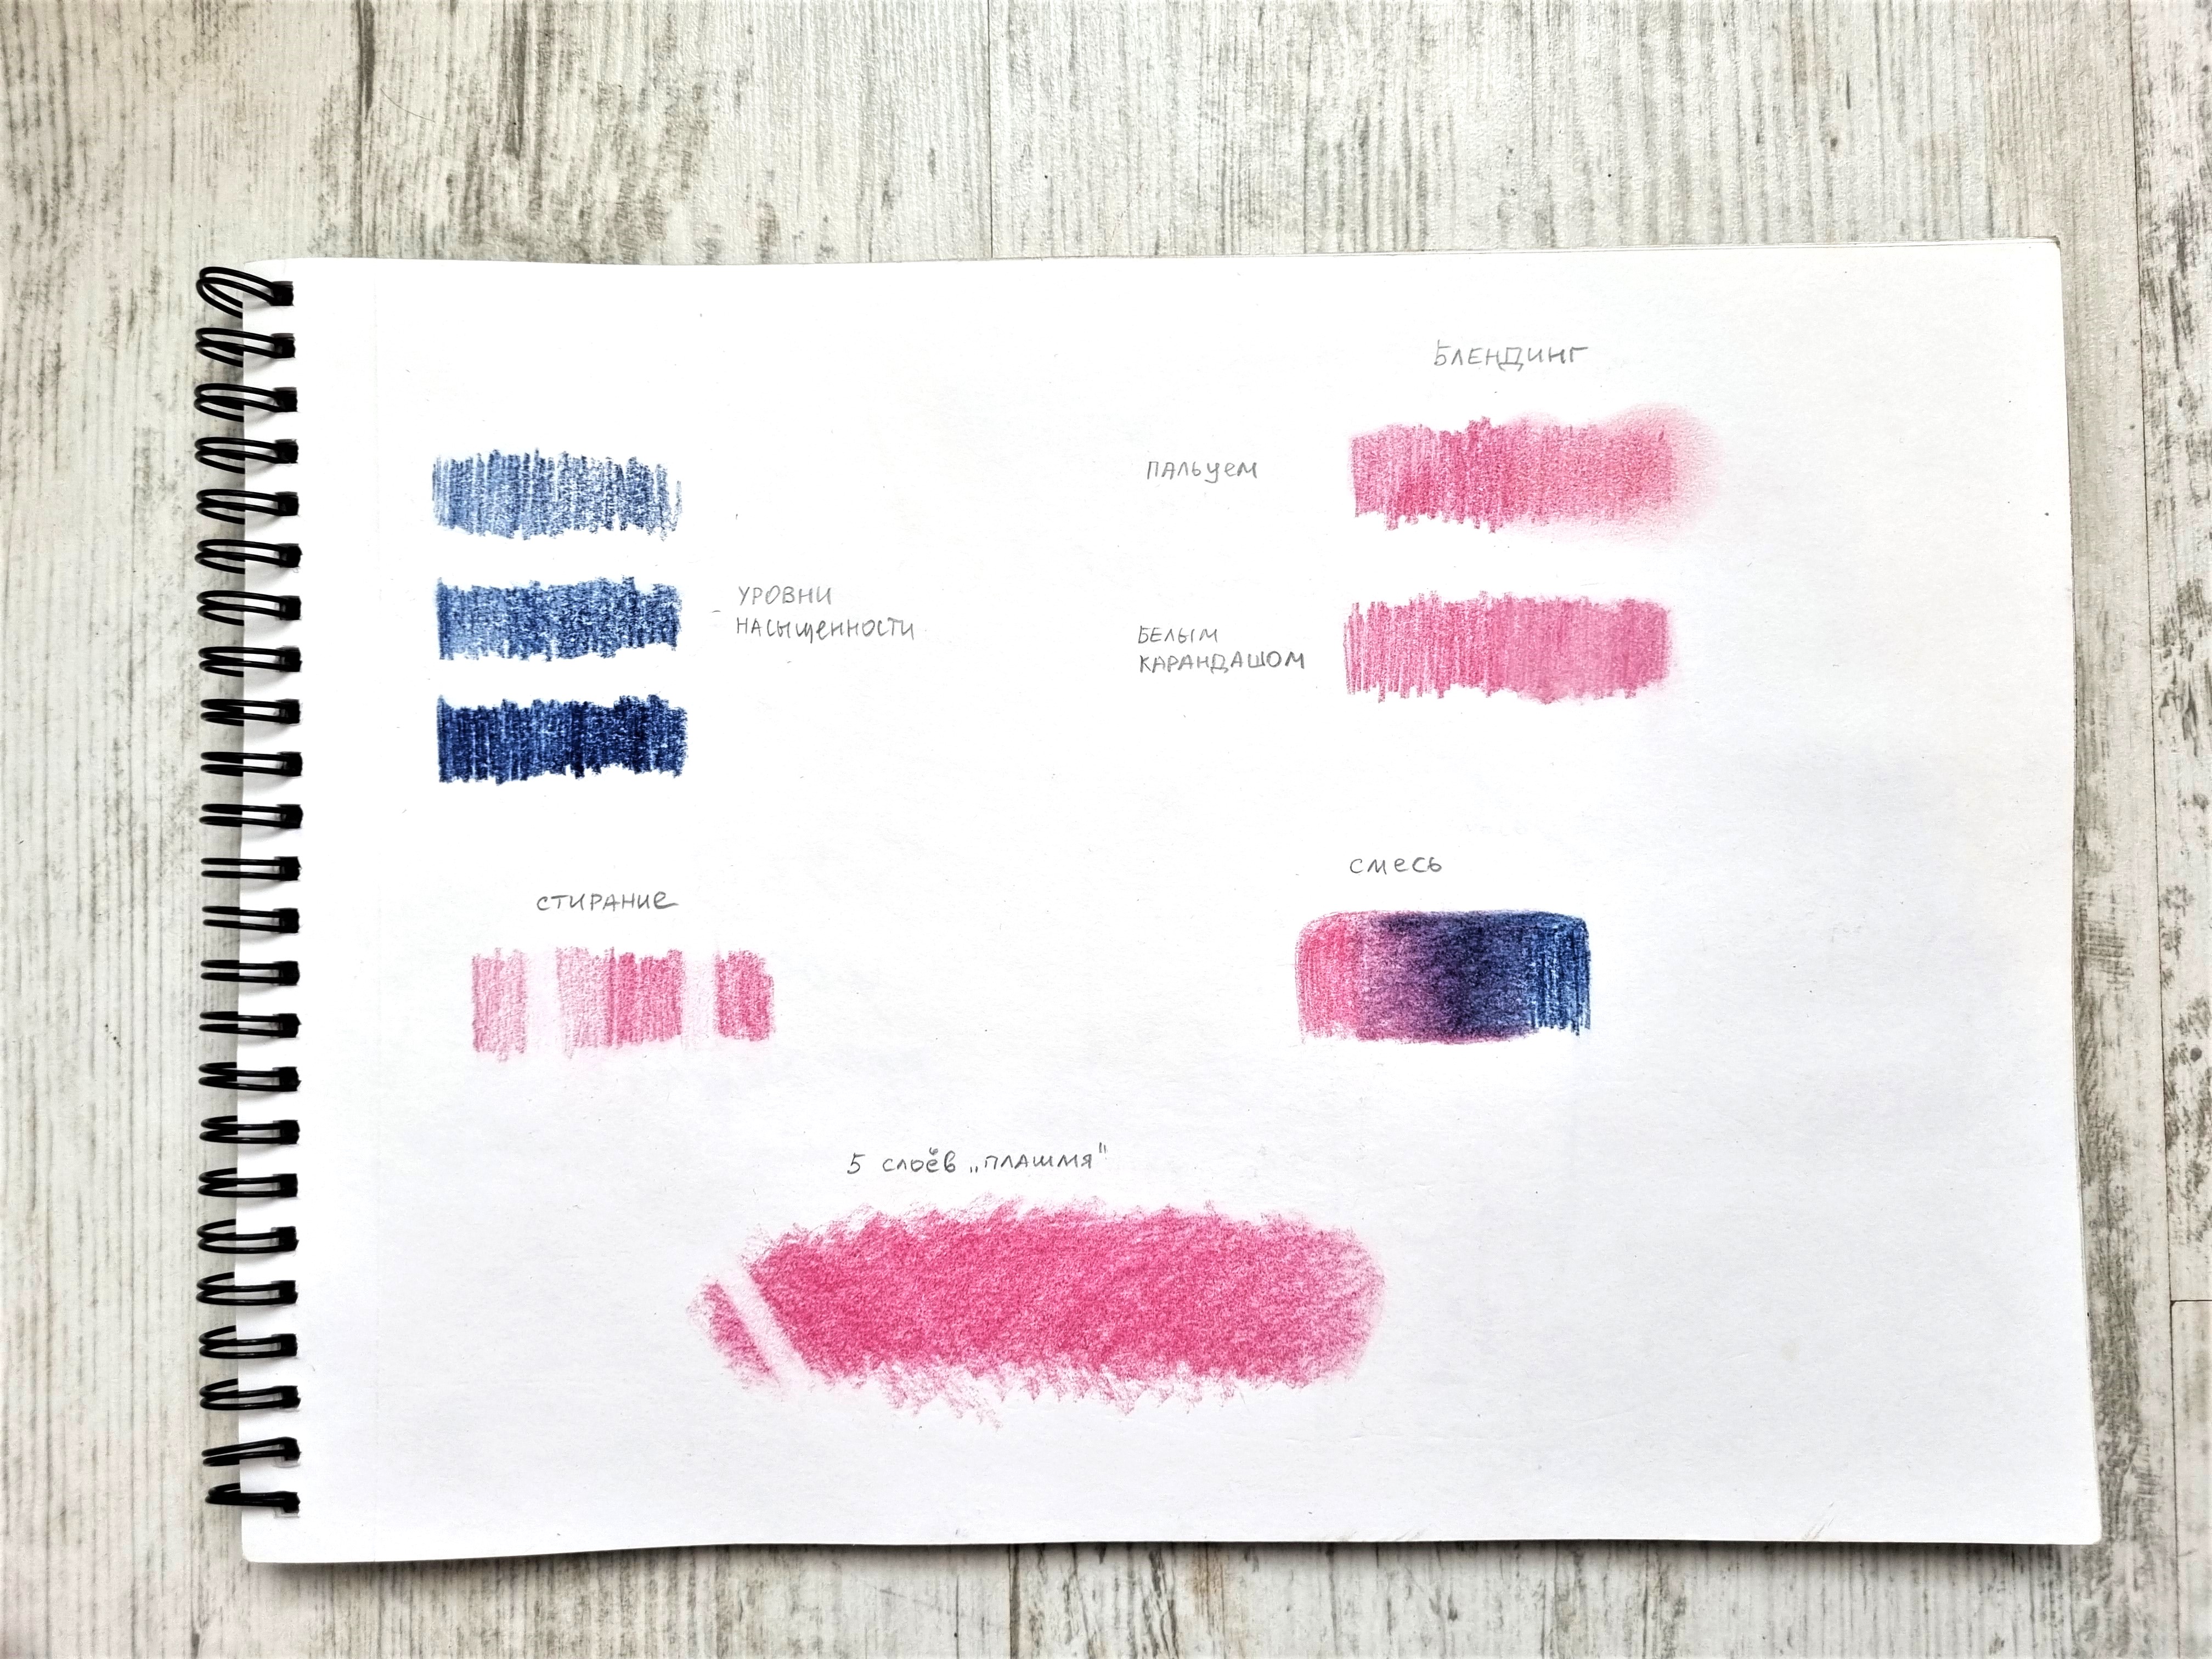 БЛЕНДИНГ
ПАЛЬЦЕМ
УРОВНИ
НАСЫЩЕННОСТИ
БЕЛЫМ
КАРАНДАШОМ
СМЕСЬ
СТИРАНИЕ
5 слоёв „ПЛАШМЯ"